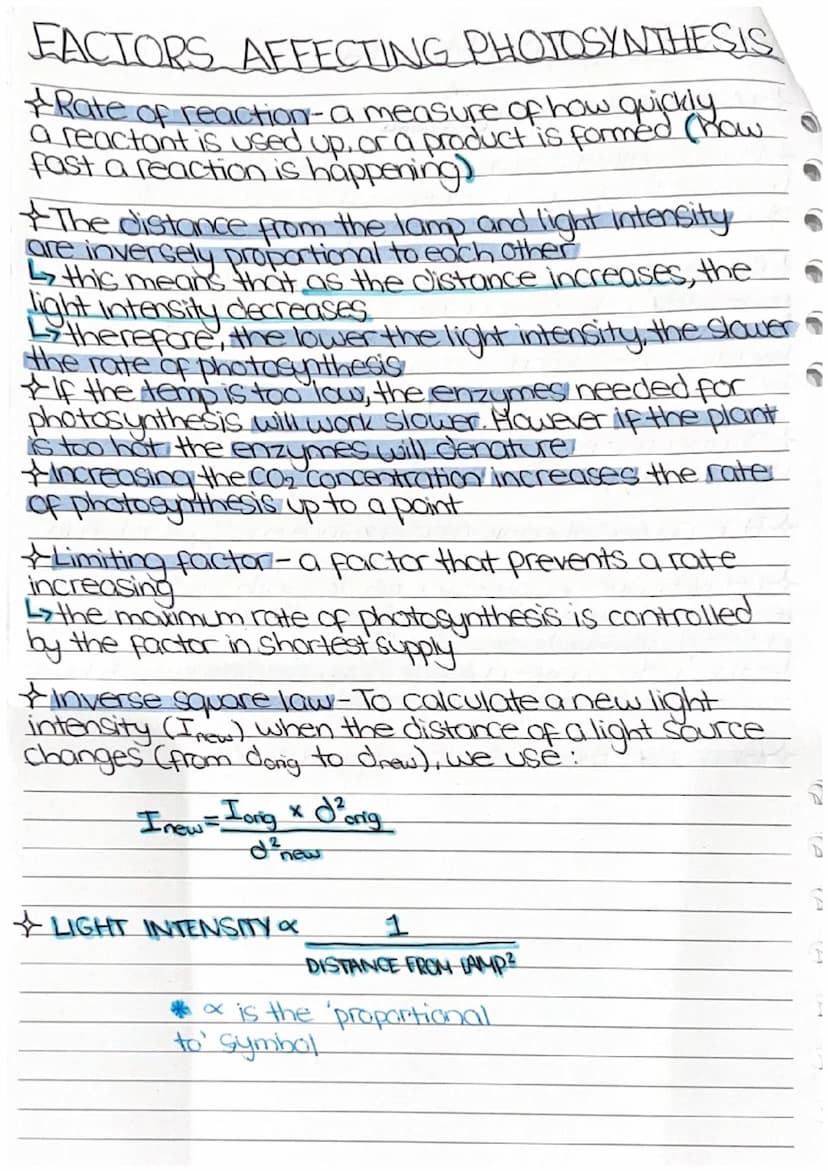 FACTORS AFFECTING PHOTOSYNTHESIS
✧Rate of reaction - a measure of how quickly
a reactant is used up, or a product is formed (how
fast a reaction is happening)
✧The distance from the lamp and light intensity
are inversely proportional to each other
↳ this means that as the distance increases, the
light intensity decreases
↳ therefore, the lower the light intensity, the slower
the rate of photosynthesis
✧If the temp is too low, the enzymes needed for
photosynthesis will work slower. However if the plant
is too hot the enzymes will denature
✧Increasing the CO₂ concentration increases the rate
of photosynthesis up to a point
✧Limiting factor - a factor that prevents a rate
increasing
↳ the maximum rate of photosynthesis is controlled
by the factor in shortest supply
✧Inverse square law - To calculate a new light
intensity (Inew) when the distance of a light source
changes (from dorig to dnew), we use :
Inew = Iorig × d²orig
d²new
✧ LIGHT INTENSITY ∝ 1
DISTANCE FROM LAMP²
* ∝ is the 'proportional
to' symbol